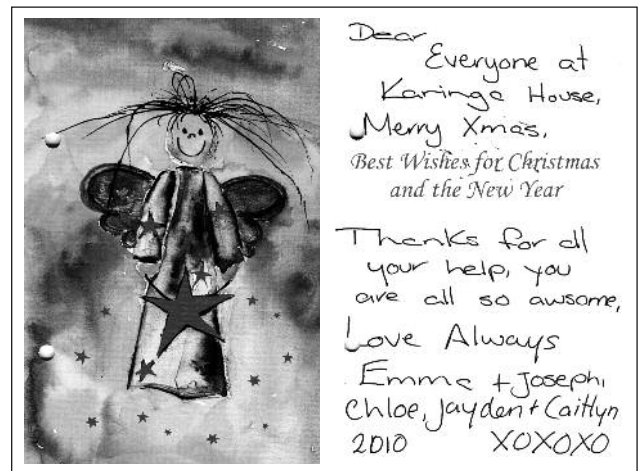 Dear
Everyone at
Karinga House,
Merry Xmas,
Best Wishes for Christmas
and the New Year
Thanks for all
your help, you
are all so awsome,
Love Always
Emma + Joseph,
Chloe, Jayden + Caitlyn
2010 XOXOXO